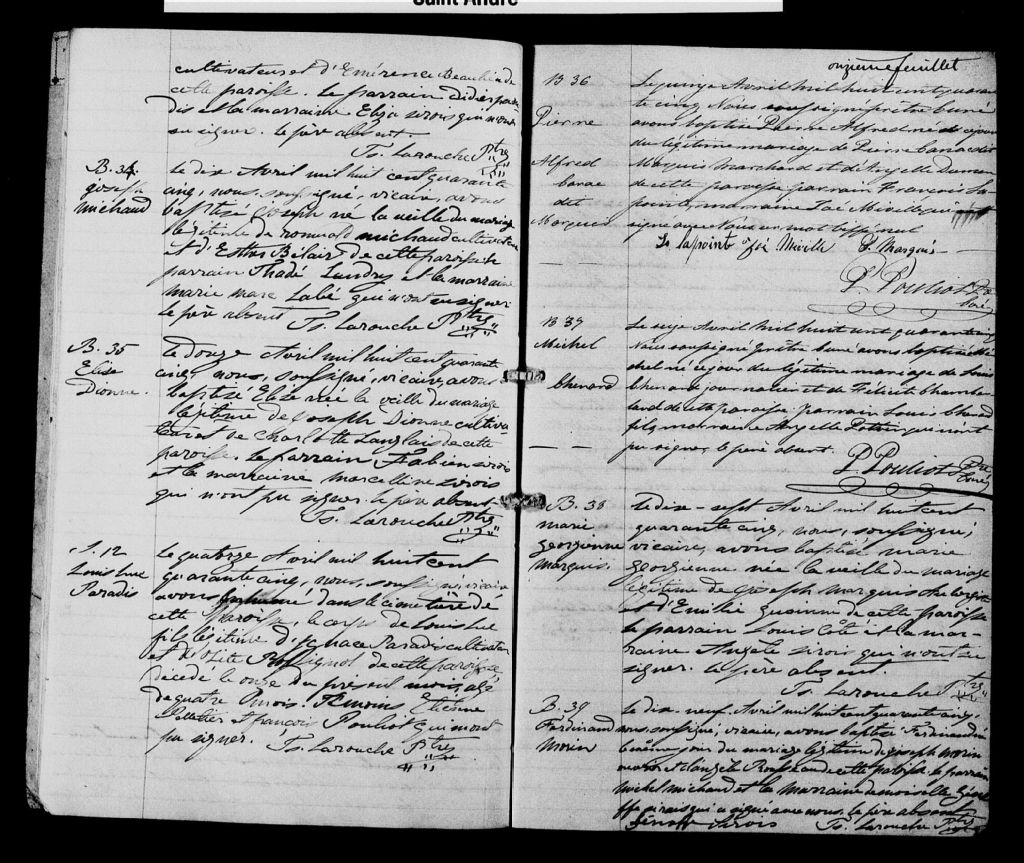 Saint André
cultivateur et d'Emérence Beaulieu de
cette paroisse. Le parrain Didier para
dis et la marraine Eliza sirois qui n'ont
su signer. le père absent.
Ts. Larouche Ptre
B. 34
joseph
michaud
Le dix Avril mil huit cent quarante
cinq, nous, soussigné, vicaire, avons
baptisé joseph né la veille du mariage
légitime de romuald michaud cultivateur
et d'Esther Bélair de cette paroisse le
parrain Thadé Landry et la marraine
marie marc Labé qui n'ont su signer
le père absent Ts. Larouche Ptre
B. 35
Elise
Dionne.
Le douze Avril mil huit cent quarante
cinq, nous, soussigné, vicaire, avons
baptisé Elise née la veille du mariage
légitime de joseph Dionne cultiva-
teur et de Charlotte Langlais de cette
paroisse, le parrain Fabien sirois
et la marraine marcelline sirois
qui n'ont pu signer. le père absent,
Ts. Larouche Ptre
S. 12
Louis Luc
Paradis
Le quatorze Avril mil huit cent
quarante cinq, nous, soussigné, vicaire
avons inhumé dans le cimetière de
cette Paroisse, le corps de Louis Luc
fils légitime d'Ignace Paradis cultivateur
et d'Osite Rossignol de cette paroisse
décédé le onze du présent mois, agé
de quatre mois. Temoins Etienne
Pelletier et François Pouliot qui n'ont
pu signer. Ts. Larouche Ptre
onzième feuillet
B 36
Pierre
Alfred
canac
dit
Marquis
Le quinze Avril mil huit cent quaran
te cinq Nous soussigné prêtre curé
avons baptisé Pierre Alfred né ce jour
du légitime mariage de Pierre Canac dit
Marquis Marchand et d'Angelle Dumon
de cette paroisse parrain Francois La
pointe, marraine Zoé Miville qui ont
signé avec Nous un mot biffé nul
F. Lapoint Zoé Miville P. Marquis
P. Pouliot Ptre
Curé
B 37
Michel
Chenard
Le seize Avril mil huit cent quarante cinq
Nous soussigné prêtre curé avons baptisé Mi
chel né ce jour du légitime mariage de Louis
Chenard journalier et de Félicité Cham
land de cette paroisse parrain Louis Chenard
fils marraine Angelle Potter qui n'ont
pu signer, le père absent.
P. Pouliot Ptre
Curé
B. 38
marie
georgienne
marquis.
Le dix-sept Avril mil huit cent
quarante cinq, nous, soussigné,
vicaire, avons baptisé marie
georgienne née la veille du mariage
légitime de joseph marquis
et d'Emilie de cette paroisse
le parrain Louis Côté et la mar-
raine Angèle sirois qui n'ont su
signer. le père absent.
Ts. Larouche Ptre
B. 39
Ferdinand
morin
Le dix-neuf Avril mil huit cent quarante cinq,
nous, soussigné, vicaire, avons baptisé Ferdinand né
le même jour du mariage légitime de joseph morin
et d'Angèle de cette paroisse. le parrain
michel michaud et la marraine demoiselle Géno
ffe sirois qui a signé avec nous, le père absent
Genoffe Sirois Ts. Larouche Ptre